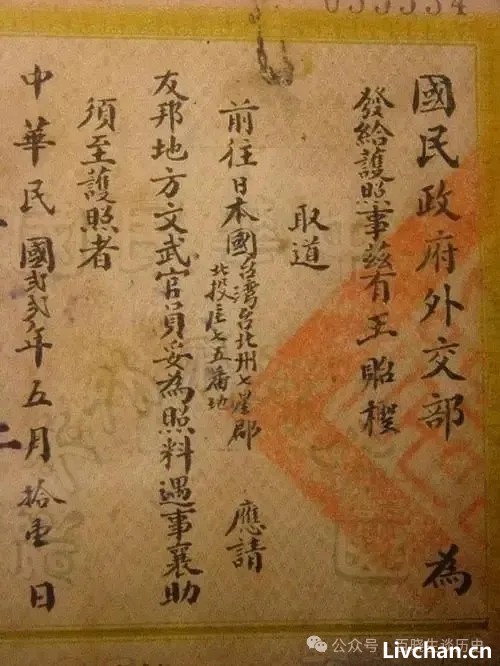 國民政府外交部 為
發給護照事茲有王貽
取道
前往日本國台灣台北州七星郡
北投庄七五番地 應請
友邦地方文武官員妥為照料遇事襄助
須至護照者
中華民國貳貳年五月拾壹日
公众号 · 百晓生谈历史
Livchan.cn